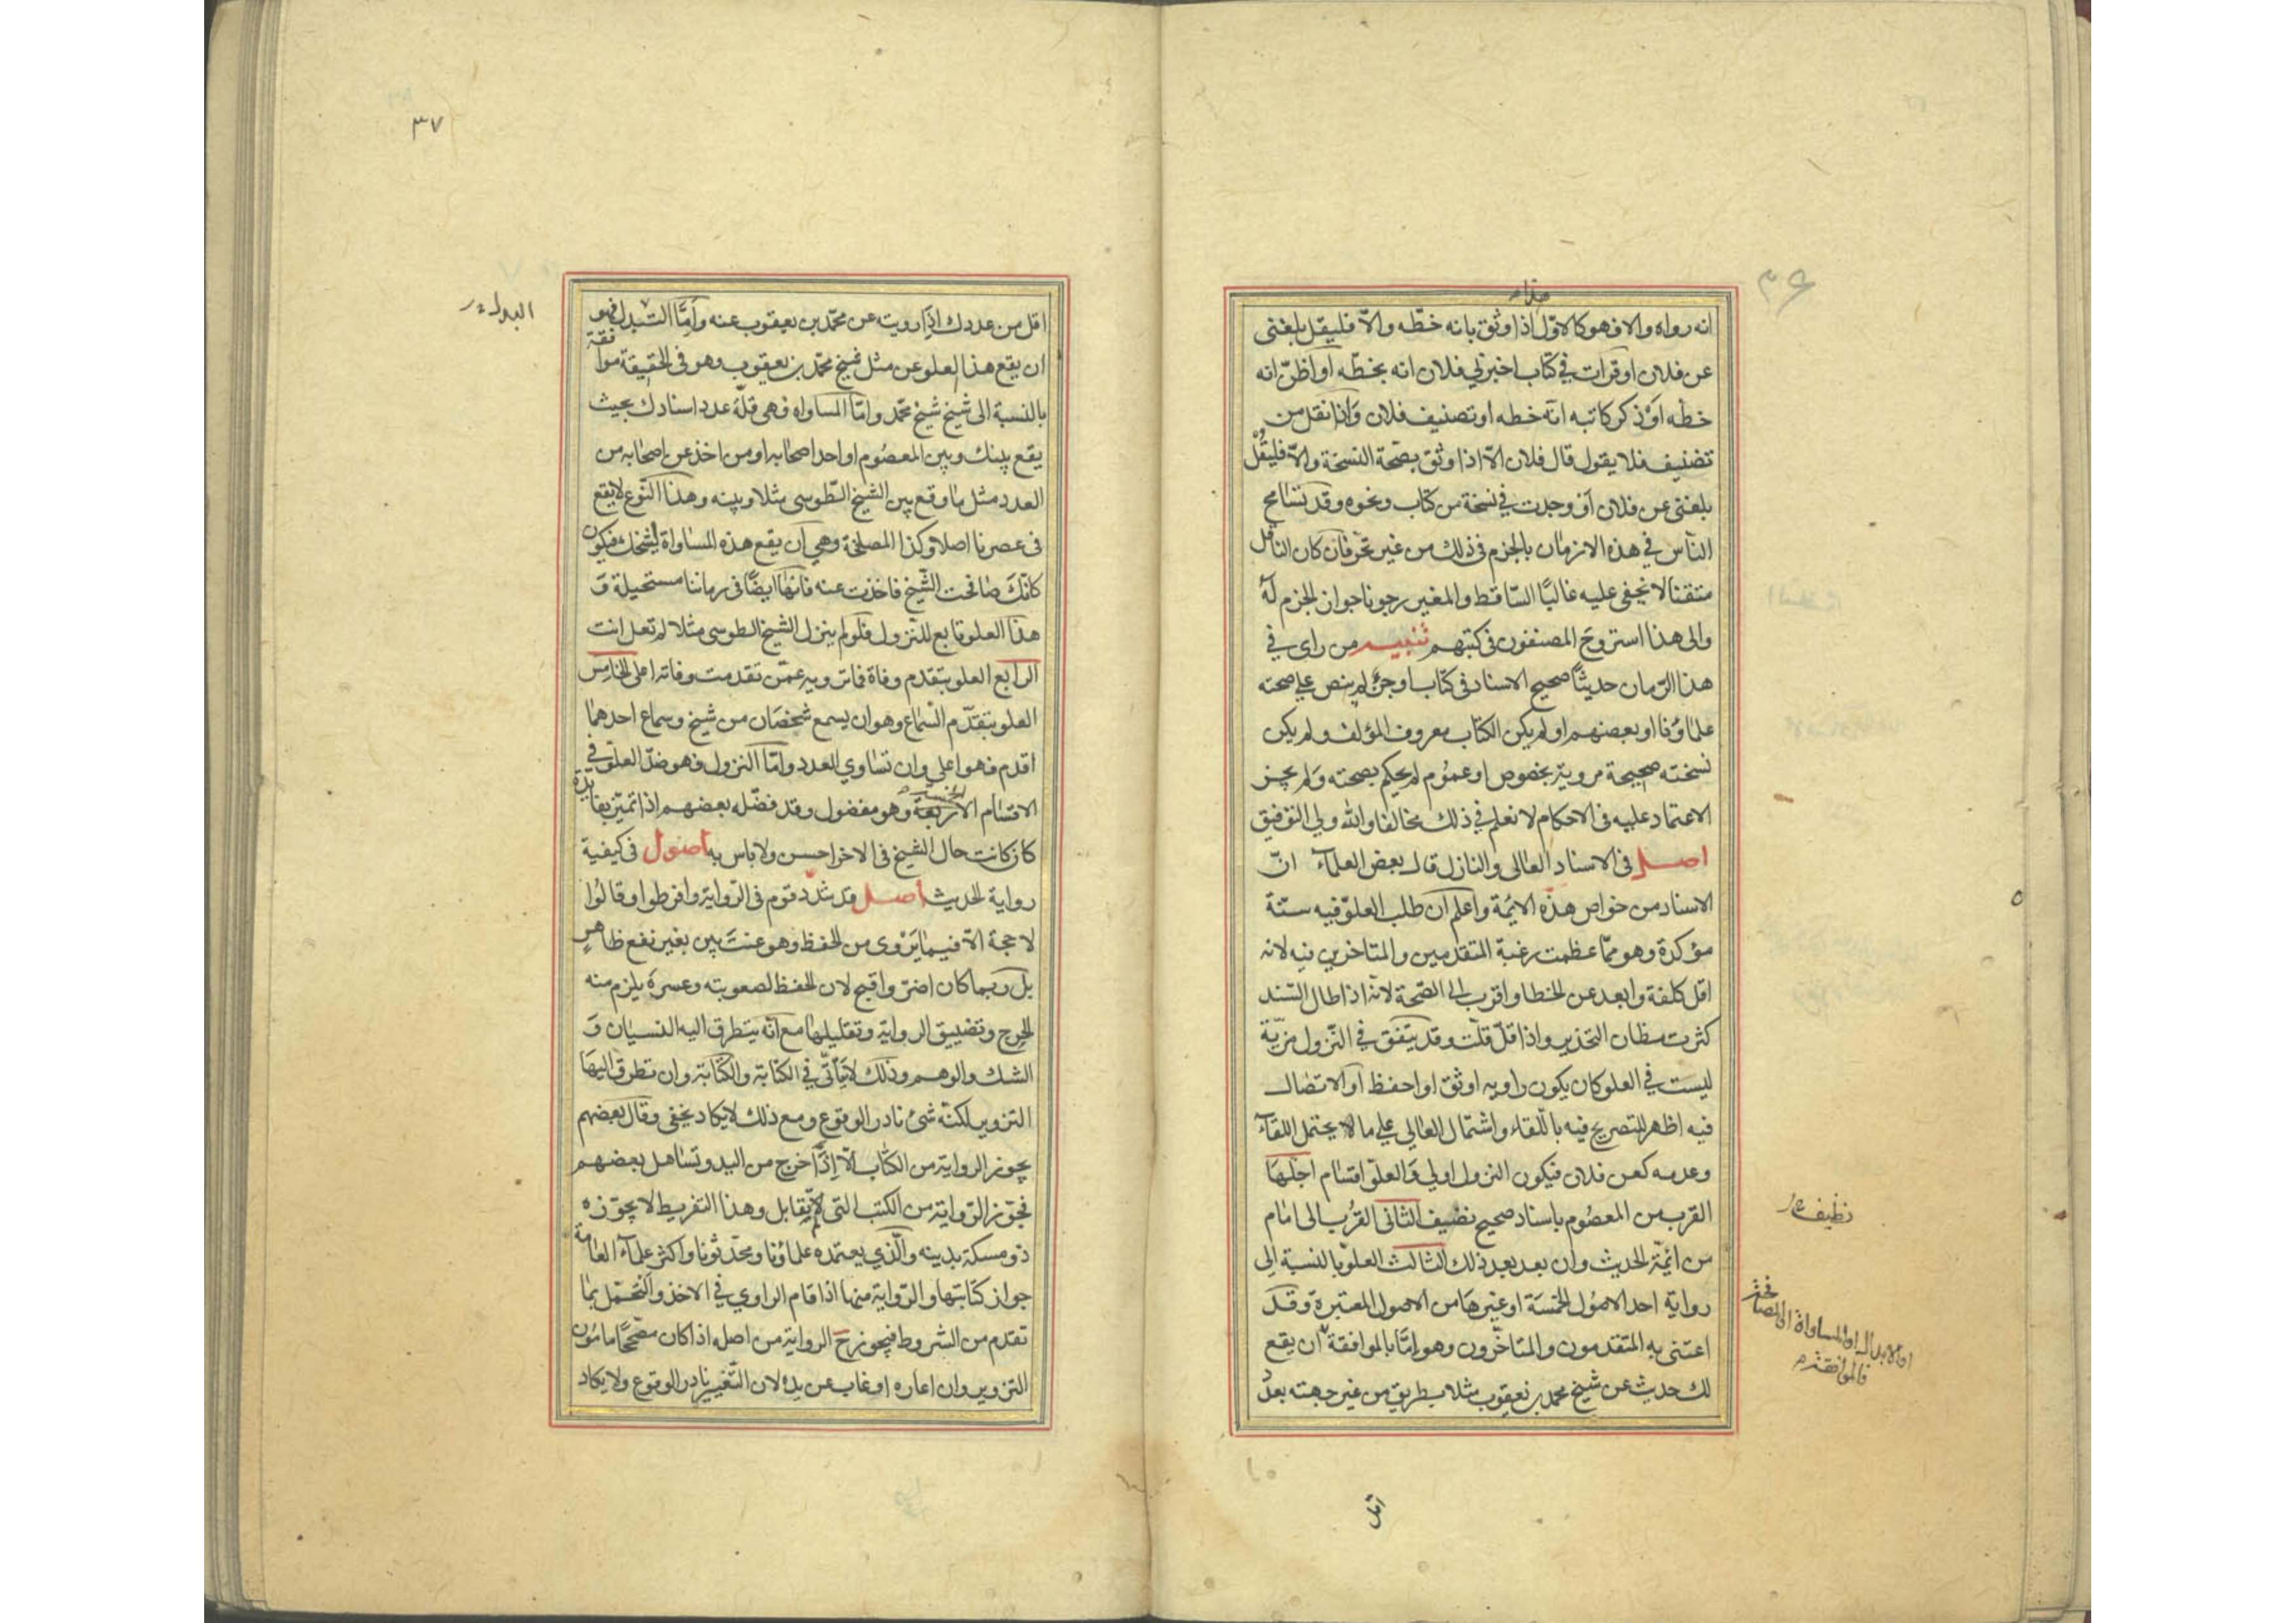 انه رواه والا فهو كالاوّل اذا وثق بانه خطّه والّا فليقل بلغنى
عن فلان او قرات في كتاب اخبرني فلان انه بخطّه او اظنّ انه
خطه اَوْ ذكر كاتبه انّه خطه او تصنيف فلان وَاذا نقل من
تصنيف فلا يقول قال فلان الّا اذا وثق بصحّة النسخة والّا فليقُلْ
بلغنى عن فلان اَو وجدت في نسخة من كتاب ونحوه وقد تسامح
النّاس في هذه الازمان بالجزم فى ذلك من غير تحرّ فان كان الناقل
متقنا لا يخفى عليه غالبًا السّاقط والمغير رجونا جواز الجزم لهُ
والى هذا استروحَ المصنفون فى كتبهم تنبيه من راى في
هذا الزّمان حديثًا صحيح الاسناد فى كتاب او جزء لم ينص على صحته
علماؤنا او بعضهم او لم يكن الكتاب معروف المؤلف ولم يكن
نسخته صحيحة مروية بخصوص او عموم لم يحكم بصحته وَلم يجز
الاعتماد عليه فى الاحكام لا نعلم في ذلك مخالفا والله ولي التوفيق
اصل فى الاسناد العالى والنازل قال بعض العلمآء انّ
الاسناد من خواص هذه الايمة واعلم ان طلب العلوّ فيه سنّة
مؤكدة وهو ممّا عظمت رغبة المتقدمين والمتاخرين فيه لانه
اقل كلفة وابعد عن الخطا واقرب الى الصّحة لانه اذا طال السّند
كثرت مظان التحذير واذا قلّ قلّت وقد يتّفق في النّزول مزيّة
ليست في العلو كان يكون راويه اوثق او احفظ او الاتصال
فيه اظهر للتصريح فيه باللّقاء واشتمال العالي على ما لا يحتمل اللقاء
وعدمه كعن فلان فيكون النزول اولي وَالعلوّ اقسام اجّلهَا
القرب من المعصُوم باسناد صحيح نظيف الثانى القرُب الى امام
من ائمّة الحديث وان بعد بعد ذلك الثالث العلوّ بالنسبة الى
رواية احد الاصُول الخمسَة او غيرهَا من الاصول المعتبرة وقد
اعتنى به المتقدمون والمتاخّرون وهو امّا بالموافقة ان يقع
لك حديث عن شيخ محمد بن يعقوب مثلا بطريق من غير جهته بعدد
نظيف
او الابدال او المساواة او المصافحة
فالموافقة
اقل
٣٧
اقل من عددك اذا رويت عن محمّد بن يعقوب عنه وامَّا التبدل فهو
ان يقع هذا العلو عن مثل شيخ محمّد بن يعقوب وهو فى الحقيقة موافقة
بالنسبة الى شيخ شيخ محمّد وامّا المساواه فهى قلّة عدد اسنادك بحيث
يقع بينك وبين المعصُوم او احد اصحابه او من اخذ عن اصحابه من
العدد مثل ما وقع بين الشيخ الطّوسى مثلا وبينه وهذا النّوع لا يقع
فى عصرنا اصلا وكذا المصافحة وهي ان يقع هذه المساواة لشيخك فيكون
كانّكَ صافحت الشّيخ فاخذت عنه فانهّا ايضًا فى زماننا مستحيلة وَ
هذا العلو تابع للنّزول فلو لم ينزل الشيخ الطوسى مثلا لم تعل انت
الرابع العلو بتقدم وفاة فما ترويه عمّن تقدمت وفاته اعلى الخامِس
العلو بتقدّم السّماع وهو ان يسمع شخصَان من شيخ وسماع احدهما
اقدم فهو اعلى وان تساوي العدد وامّا النزول فهو ضدّ العلوّ في
الاقسام الاربعة وهو مفضول وقد فضّله بعضهم اذا تميّز بفايدة
كان كانت حال الشيخ فى الاخر احسن ولا باس به اصول فى كيفية
رواية الحديث اصل قد شدّد قوم فى الرّواية وافرطوا وقالُوا
لا حجة الّا فيما يَرْوى من الحفظ وهو عنت بيّن بغير نفع ظاهر
بل ربما كان اضرّ واقبح لان الحفظ لصعوبته وعسره يلزم منه
الحرج وتضييق الرواية وتقليلها مع انّه يتطرق اليه النسيان وَ
الشك والوهم وذلك لا يتأتّى في الكتابة والكتابة وان تطرق اليهَا
التزوير لكنّه شئ نادر الوقوع ومع ذلك لا يكاد يخفى وقال بعضهم
يجوز الرواية من الكتاب الّا اِذَا خرج من اليد وتساهل بعضهم
فجوّز الرّواية من الكتب التى لم يقابل وهذا التفريط لا يجوّزه
ذو مسكة بدينه والّذي يعتمده علماؤنا ومحدّثونا واكثر علمآء العامة
جواز كتابتها والرّواية منها اذا قام الراوي في الاخذ والتحمّل بما
تقدم من الشروط فيجوز ح الرواية من اصله اذا كان مصّححًا مامُون
التزوير وان اعاره او غاب عن يده لان التّغيير نادر الوقوع ولا يكاد